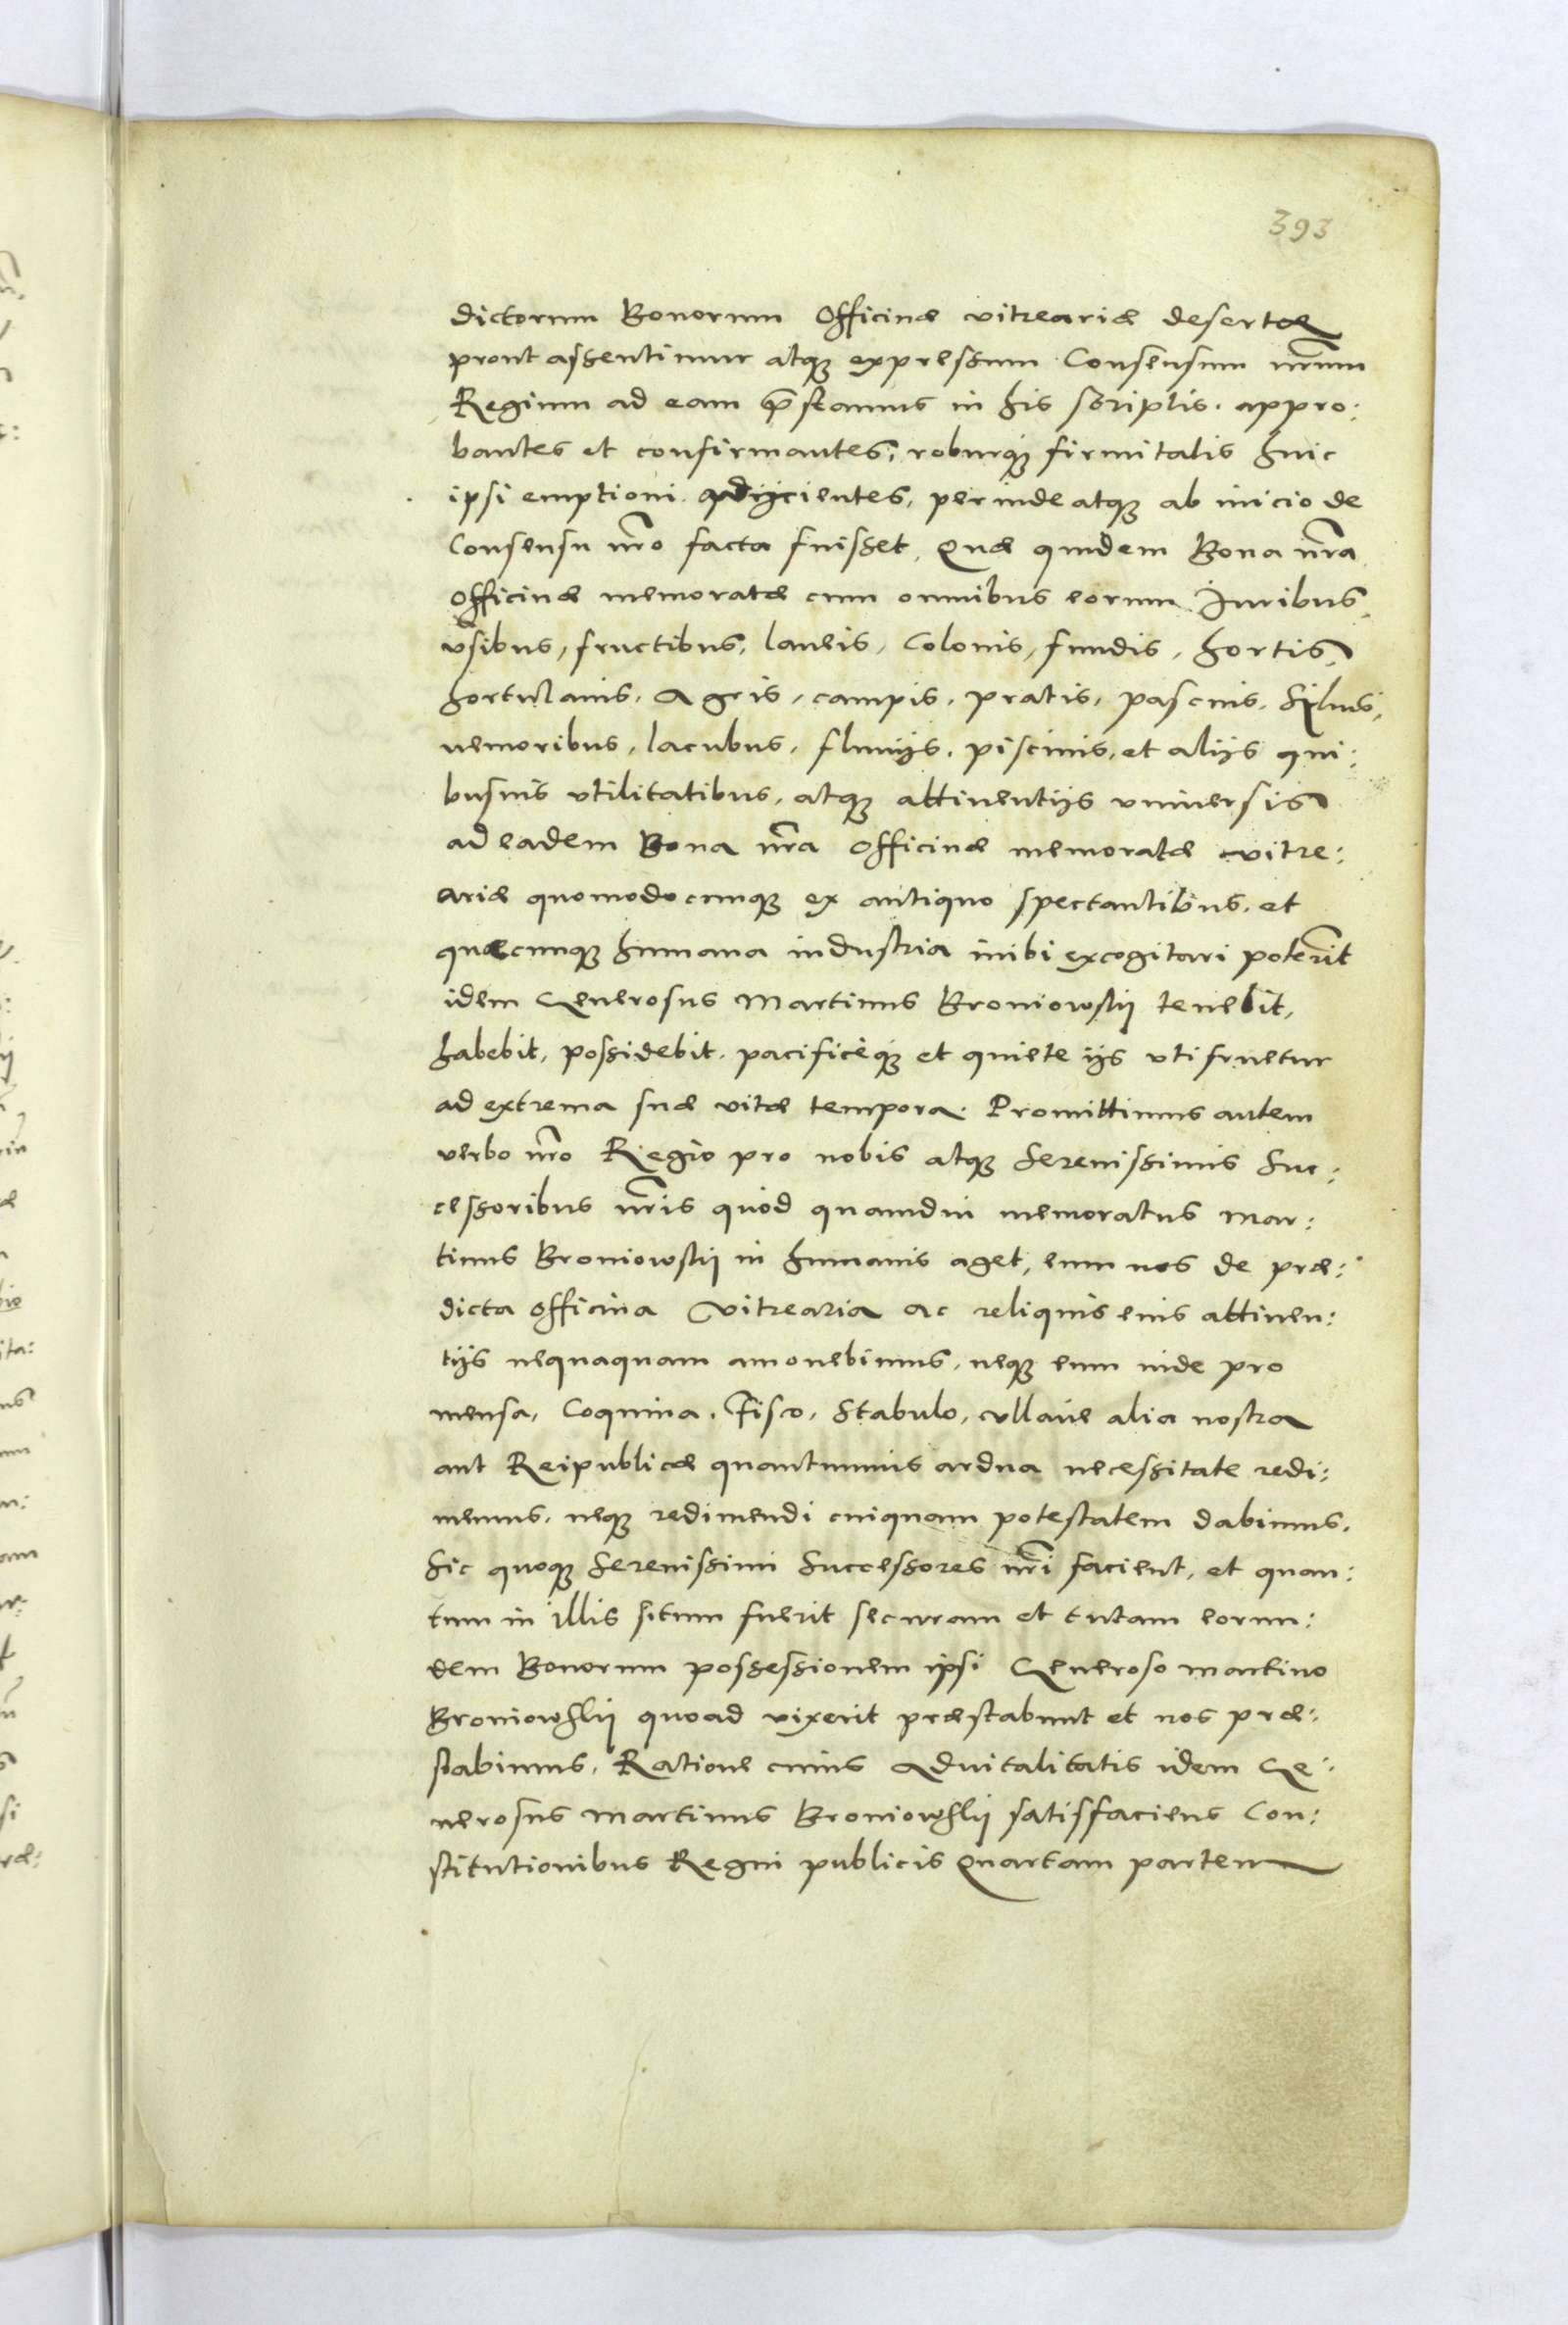 393
dictorum Bonorum Officinæ vitreariæ desertæ
prout assentimur atq; expressum Consensum nr̃um
Regium ad eam p̃stamus in his scriptis. appro:
bantes et confirmantes, roburq; firmitatis huic
ipsi emptioni adijcientes, perinde atq; ab inicio de
Consensu nr̃o facta fuisset, Quæ quidem Bona nr̃a
Officinæ memoratæ cum omnibus eorum Iuribus,
vsibus, fructibus, laneis, Colonis, fundis, hortis,
hortulanis, Agris, campis, pratis, pascuis, Syluis,
nemoribus, lacubus, fluuijs, piscinis, et alijs qui:
busuis vtilitatibus, atq; attinentijs vniuersis
ad eadem Bona nr̃a Officinæ memoratæ vitre:
ariæ quomodocunq; ex antiquo spectantibus, et
quæcunq; humana industria inibi excogitari poterũt
idem Generosus Martinus Broniowskij tenebit,
habebit, possidebit, pacificèq; et quiete ijs vti fruetur
ad extrema suæ vitæ tempora. Promittimus autem
verbo nr̃o Regio pro nobis atq; Serenissimis Suc:
cessoribus nr̃is quòd quamdiu memoratus Mar:
tinus Broniowskij in humanis aget, eum nos de præ:
dicta officina Vitrearia ac reliquis eius attinen:
tijs nequaquam amouebimus, neq; eum inde pro
mensa, Coquina, Fisco, Stabulo, vllaue alia nostra
aut Reipublicæ quantumuis ardua necessitate redi:
memus, neq; redimendi cuiquam potestatem dabimus.
Sic quoq; Serenissimi Successores nr̃i facient, et quan:
tum in illis situm fuerit securam et tutam eorun:
dem Bonorum possessionem ipsi Generoso Martino
Broniowskij quoad vixerit præstabunt et nos præ:
stabimus, Ratione cuius Aduitalitatis idem Ge:
nerosus Martinus Broniowskij satisfaciens Con:
stitutionibus Regni publicis Quartam partem